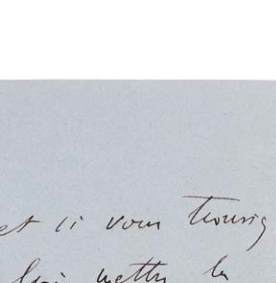 et si vous trouvez
lui mettre la